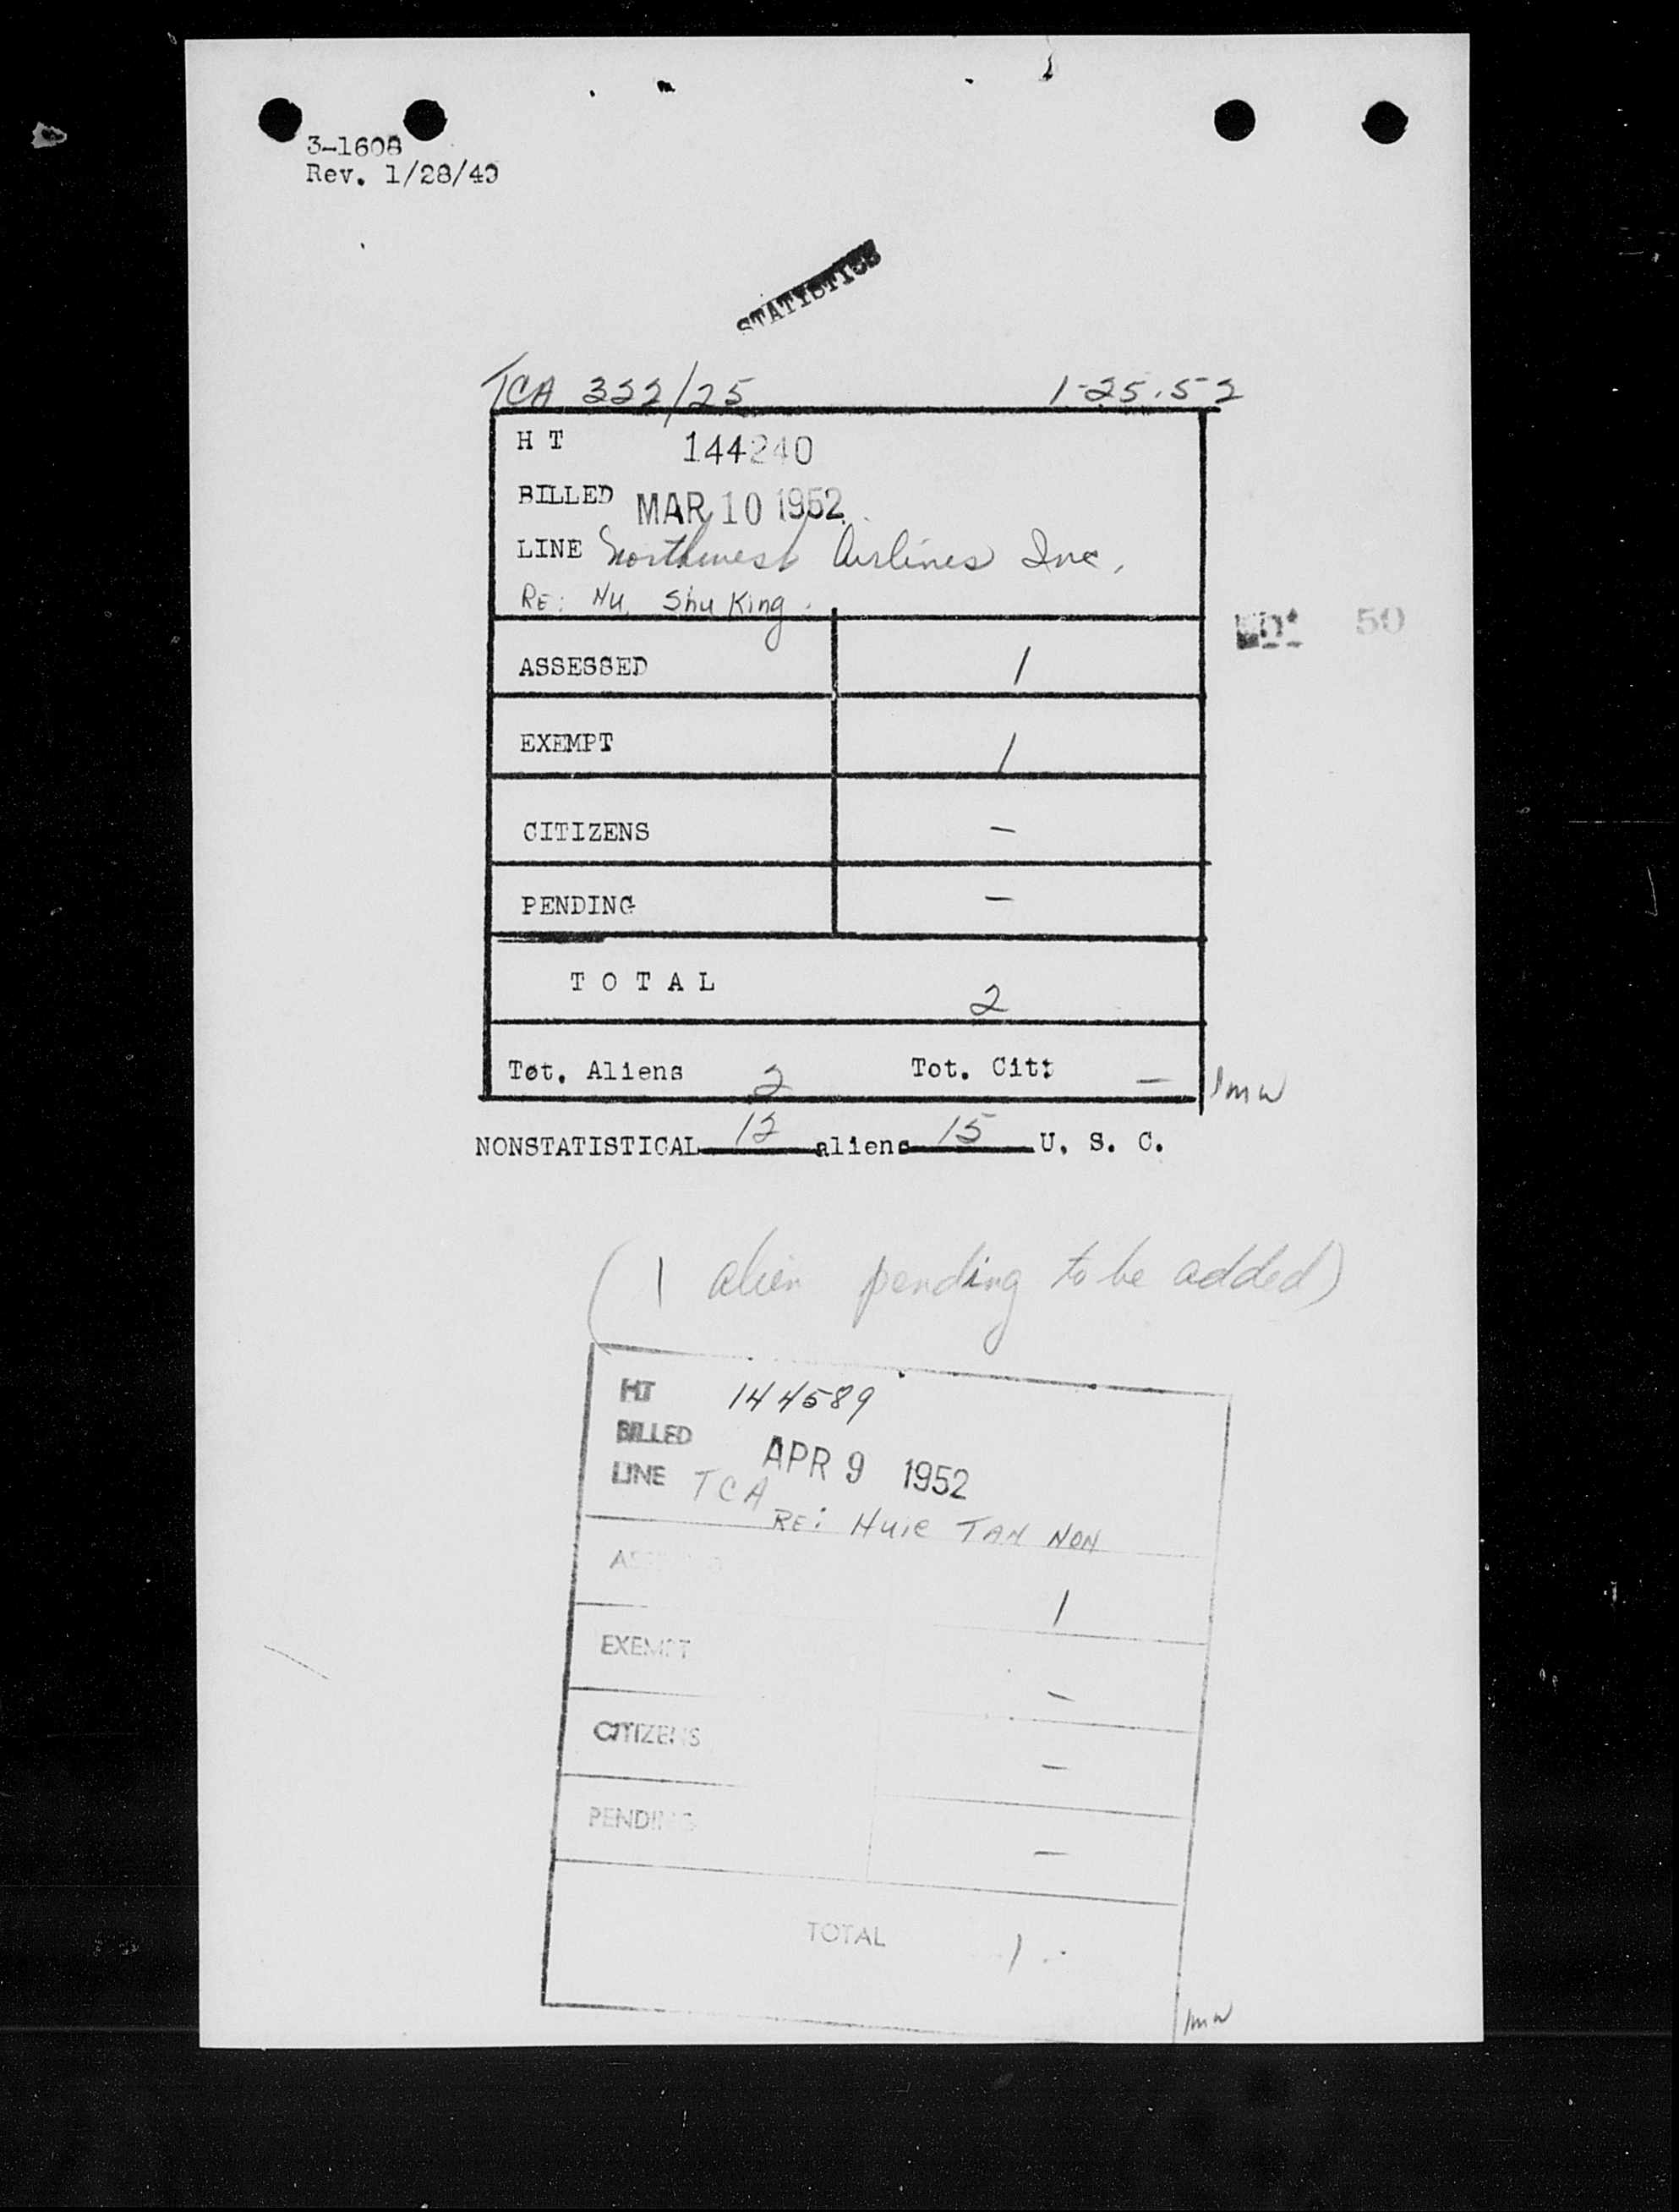 3-1608
Rev. 1/28/49
STATISTICS
TCA 322/25 1-25-52
H T 144240
BILLED MAR 10 1952
LINE Northwest Airlines Inc.
RE: Nu, Shu King.
50
ASSESSED 1
EXEMPT 1
CITIZENS –
PENDING –
T O T A L 2
Tot. Aliens 2 Tot. Cit: –
lmw
NONSTATISTICAL 12 aliens 15 U. S. C.
(1 alien pending to be added)
HT 144589
BILLED APR 9 1952
LINE TCA
RE: Huie TAN NON
1
EXEMPT –
CITIZENS –
PENDING –
TOTAL 1
lmw